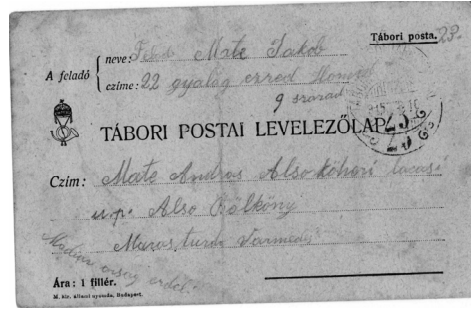 Tábori posta.
23.
A feladó
neve: Mate Jakab
czíme: 22 gyalog ezred
9 szazad
TÁBORI POSTAI LEVELEZŐLAP
23
Czím: Mate Andras Also köheri lacasi
u.p. Also Bölkény
Maros turda
Magyar orszag erdel
Ára: 1 fillér.
M. kir. állami nyomda, Budapest.